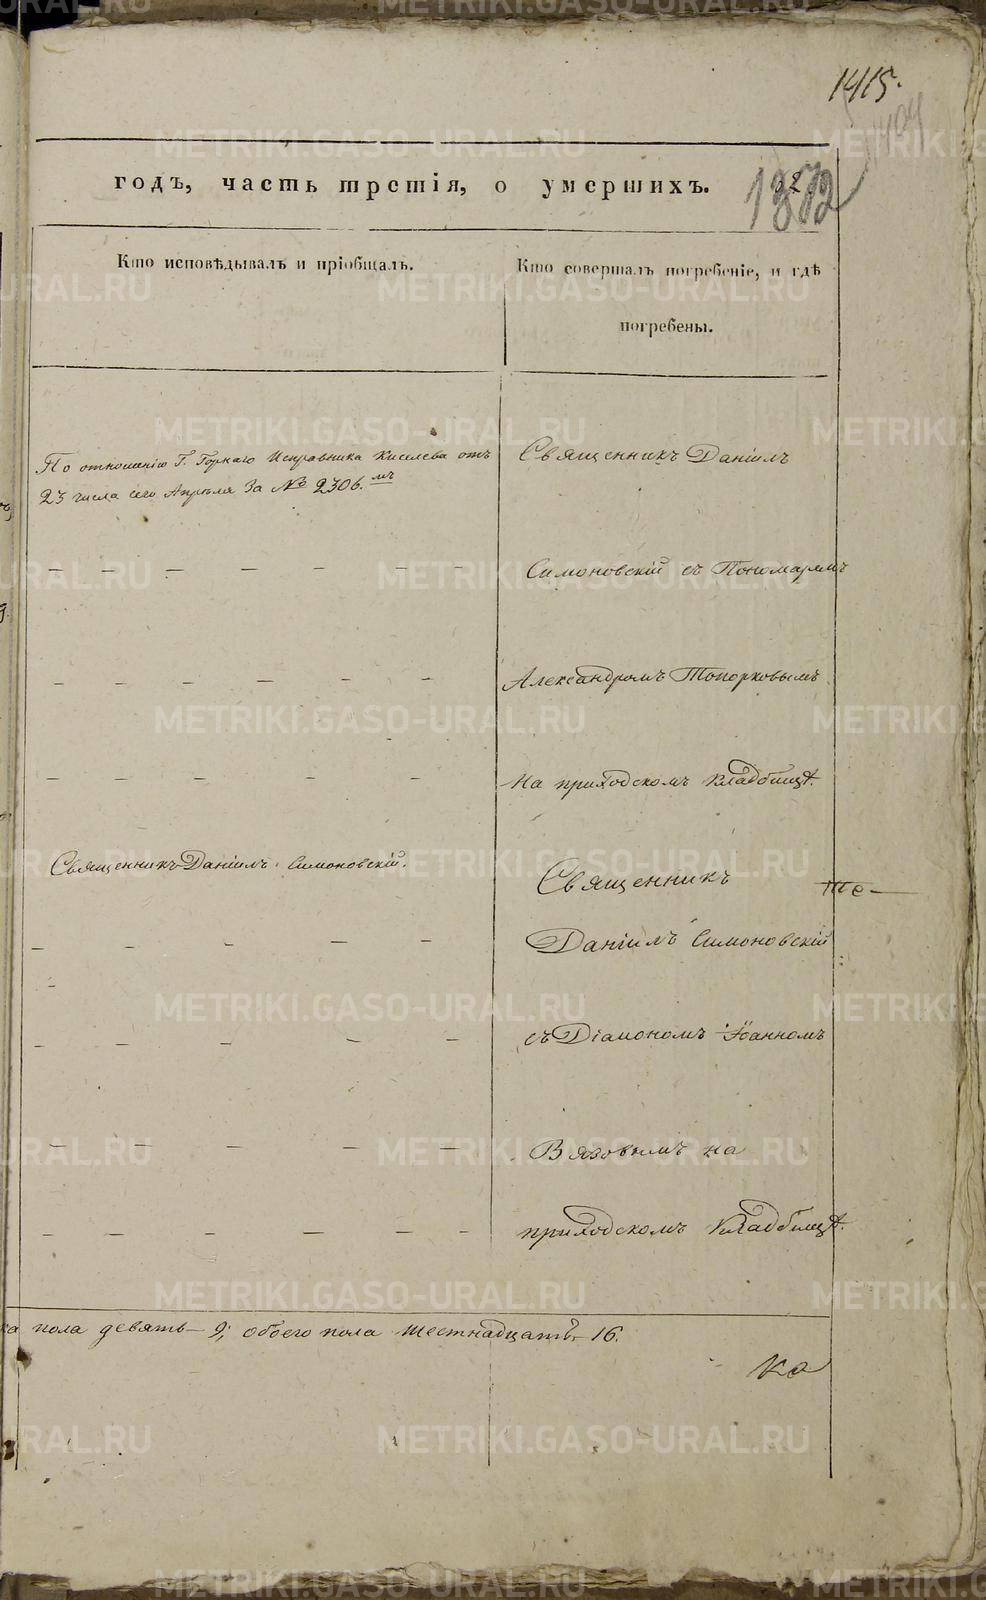 1415.
годъ, часть третія, о умершихъ.
Кто исповѣдывалъ и пріобщалъ.
Кто совершалъ погребеніе, и гдѣ
погребены.
По отношенію Г. Горнаго Исправника Киселева отъ
23 числа сего Апрѣля За № 2306.мъ
Священникъ Даніилъ
Симоновскій съ Пономаремъ
Александромъ Топорковымъ
на приходскомъ кладбищѣ.
Священникъ Даніилъ Симоновскій.
Священникъ
Даніилъ Симоновскій
съ Діакономъ Іоанномъ
Вязовымъ на
приходскомъ кладбищѣ.
ка пола девять 9; обоего пола шестнадцать 16.
METRIKI.GASO-URAL.RU